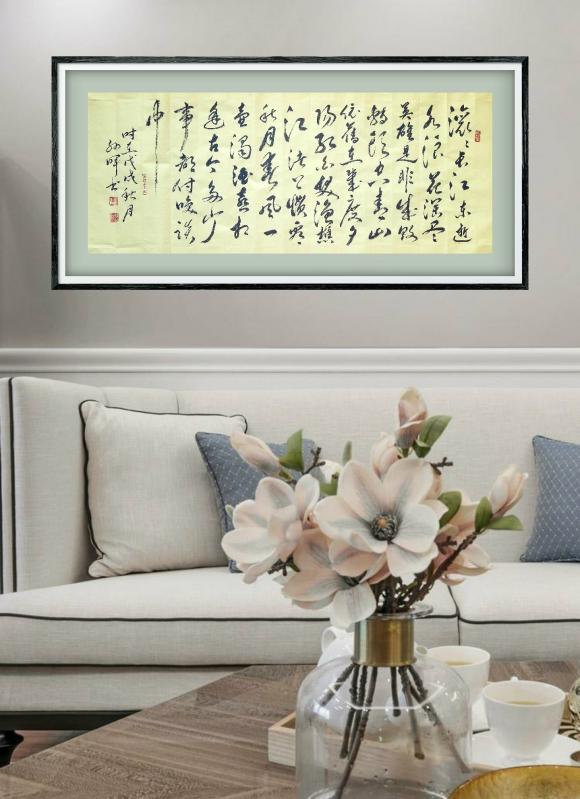 滚滚长江东逝
水浪花淘尽
英雄是非成败
转头空青山
依旧在几度夕
阳红白发渔樵
江渚上惯看
秋月春风一
壶浊酒喜相
逢古今多少
事都付笑谈
中
时在戊戌秋月
孙晖书